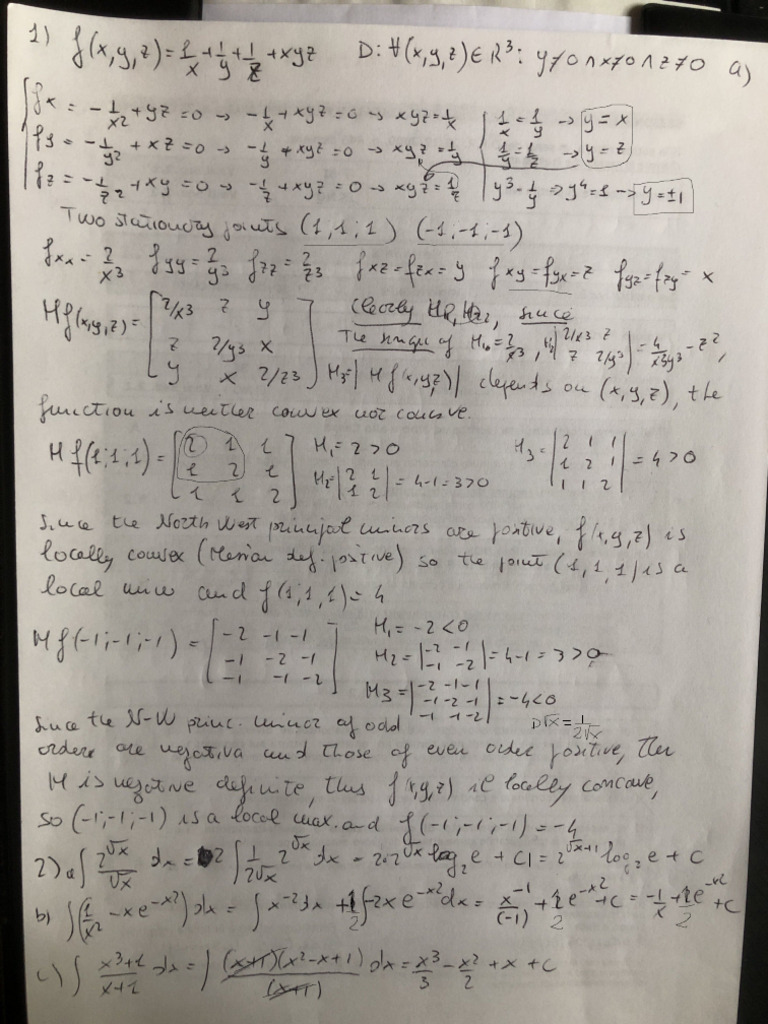 1) f(x,y,z) = 1/x + 1/y + 1/z + xyz D: ∀(x,y,z) ∈ R³: y≠0 ∧ x≠0 ∧ z≠0 a)
fx = -1/x² + yz = 0 → -1/x + xyz = 0 → xyz = 1/x 1/x = 1/y → y = x
fy = -1/y² + xz = 0 → -1/y + xyz = 0 → xyz = 1/y 1/y = 1/z → y = z
fz = -1/z² + xy = 0 → -1/z + xyz = 0 → xyz = 1/z y³ = 1/y ⇒ y⁴ = 1 → y = ±1
Two stationary points (1,1,1) (-1,-1,-1)
fxx = 2/x³ fyy = 2/y³ fzz = 2/z³ fxz = fzx = y fxy = fyx = z fyz = fzy = x
Hf(x,y,z) = [2/x³ z y
z 2/y³ x
y x 2/z³]
clearly since
The of H₁ = 2/x³, H₂ |2/x³ z
z 2/y³| = 4/x³y³ - z²,
H₃ = |Hf(x,y,z)| depends on (x,y,z), the
function is neither convex nor concave.
Hf(1;1;1) = [2 1 1
1 2 1
1 1 2] H₁ = 2 > 0
H₂ = |2 1
1 2| = 4-1 = 3 > 0
H₃ = |2 1 1
1 2 1
1 1 2| = 4 > 0
Since the North West principal minors are positive, f(x,y,z) is
locally convex (Hessian def. positive) so the point (1,1,1) is a
local min and f(1;1;1) = 4
Hf(-1;-1;-1) = [-2 -1 -1
-1 -2 -1
-1 -1 -2] H₁ = -2 < 0
H₂ = |-2 -1
-1 -2| = 4-1 = 3 > 0
H₃ = |-2 -1 -1
-1 -2 -1
-1 -1 -2| = -4 < 0
D√x = 1/2√x
Since the N-W princ. minor of odd
orders are negativa and those of even order positive, then
H is negative definite, thus f(x,y,z) is locally concave,
so (-1;-1;-1) is a local max. and f(-1;-1;-1) = -4
2) a ∫ 2^√x/√x dx = 2 ∫ 1/2√x 2^√x dx = 2·2^√x log₂e + C = 2^(√x+1) log₂e + C
b) ∫(1/x² - xe^(-x²))dx = ∫x⁻²dx + 1/2 ∫-2xe^(-x²)dx = x⁻¹/(-1) + 1/2 e^(-x²) + C = -1/x + 1/2 e^(-x²) + C
c) ∫ x³+1/x+1 dx = ∫ (x+1)(x²-x+1)/(x+1) dx = x³/3 - x²/2 + x + C